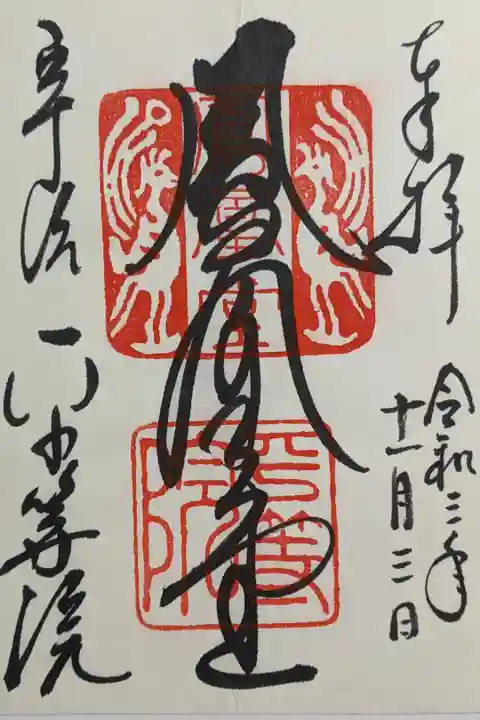 奉拝
令和三年
十一月三日
鳳凰堂
鳳凰堂
平等院
宇治 平等院